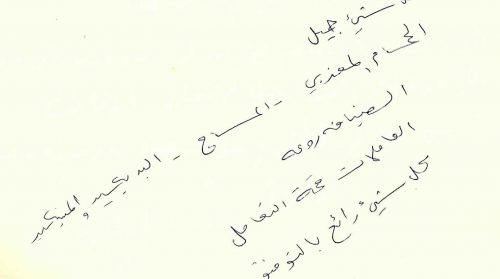 كل شيئ جميل
الحمام المغربي - المساج - البديكير و المنيكير
الضيافه روعه
العاملات قمة التعامل
بكل شيئ رائع بالتوفيق